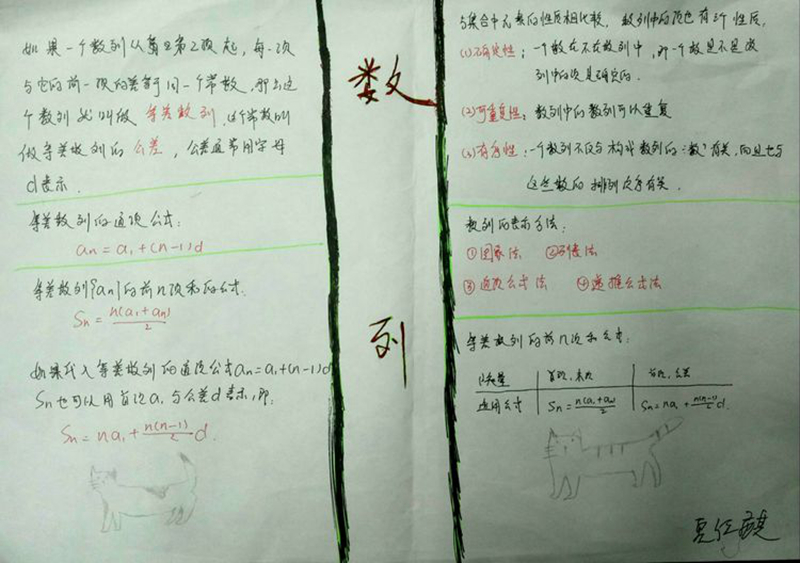 如果一个数列从第2第2项起,每一项
与它的前一项的差等于同一个常数,那么这
个数列就叫做 等差数列,这个常数叫
做等差数列的公差,公差通常用字母
d表示.
等差数列的通项公式:
an=a1+(n-1)d
等差数列{an}的前n项和的公式:
Sn=n(a1+an)/2
如果代入等差数列的通项公式an=a1+(n-1)d
Sn也可以用首项a1与公差d表示,即:
Sn=na1+n(n-1)/2 d.
数
列
与集合中元素的性质相比较,数列中的项也有3个性质,
(1)确定性:一个数在不在数列中,即一个数是不是数
列中的项是确定的.
(2)可重复性:数列中的数列可以重复
(3)有序性:一个数列不仅与构成数列的:数"有关,而且也与
这些数的排列次序有关.
数列的表示方法:
①图象法 ②列表法
③通项公式法 ④递推公式法
等差数列的前n项和公式:
已知量 首项,末项 首项,公差
选用公式 Sn=n(a1+an)/2 Sn=na1+n(n-1)/2 d.